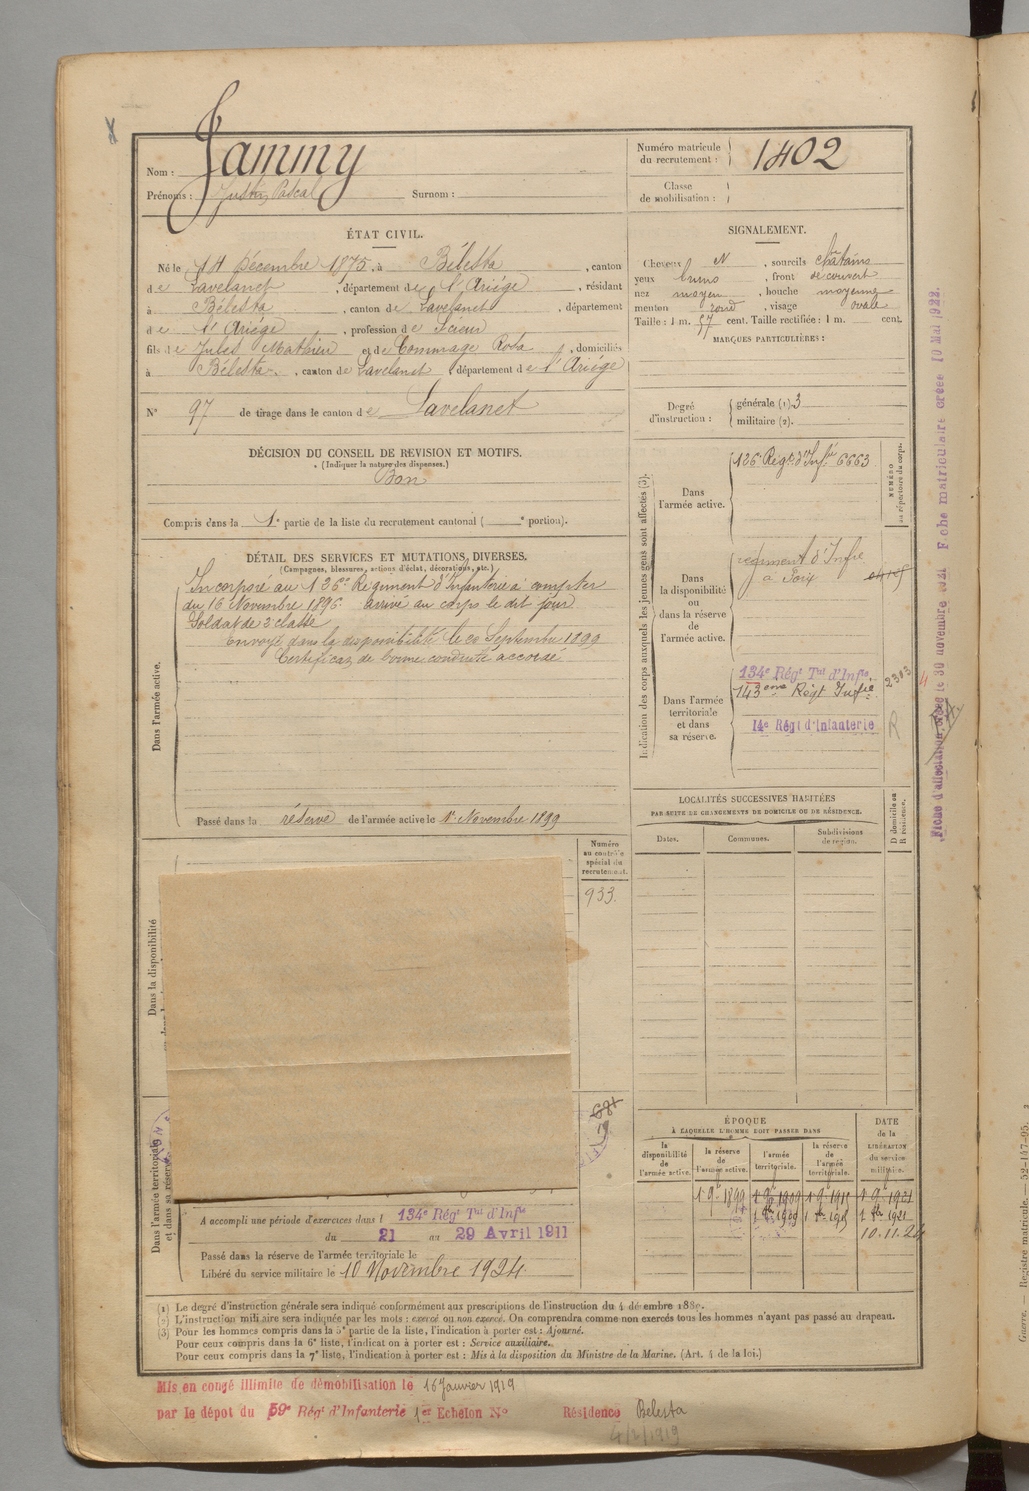 Nom : Jammy
Prénoms : Justin, Pascal Surnom :
Numéro matricule du recrutement : 1402
Classe de mobilisation :
ÉTAT CIVIL.
Né le 14 Décembre 1875, à Bélesta, canton
de Lavelanet, département de l'Ariége, résidant
à Bélesta, canton de Lavelanet, département
de l'Ariége, profession de scieur
fils de Jules Mathieu et de Commage Rosa, domiciliés
à Bélesta, canton de Lavelanet, département de l'Ariége
N° 97 de tirage dans le canton de Lavelanet
DÉCISION DU CONSEIL DE REVISION ET MOTIFS.
(Indiquer la nature des dispenses.)
Bon
Compris dans la 1e partie de la liste du recrutement cantonal ( e portion).
SIGNALEMENT.
Cheveux N, sourcils châtains
yeux bruns, front découvert
nez moyen, bouche moyenne
menton rond, visage ovale
Taille : 1 m. 57 cent. Taille rectifiée : 1 m. cent.
MARQUES PARTICULIÈRES :
Degré d'instruction :
générale (1). 3
militaire (2).
DÉTAIL DES SERVICES ET MUTATIONS DIVERSES.
(Campagnes, blessures, actions d'éclat, décorations, etc.)
Dans l'armée active.
Incorporé au 126e Régiment d'Infanterie à compter
du 16 Novembre 1896. arrivé au corps le dit jour
Soldat de 2e classe
Envoyé dans la disponibilité le 20 Septembre 1899
Certificat de bonne conduite accordé
Passé dans la réserve de l'armée active le 1er Novembre 1899
Indication des corps auxquels les jeunes gens sont affectés (3).
NUMÉRO au répertoire du corps.
Dans l'armée active.
126e Régt d'Infie 6663
Dans la disponibilité ou dans la réserve de l'armée active.
régiment d'Infie
à Foix
Dans l'armée territoriale et dans sa réserve.
134e Régt Tal d'Infie
143eme Régt Infie 2303
14e Régt d'Infanterie R
LOCALITÉS SUCCESSIVES HABITÉES
PAR SUITE DE CHANGEMENTS DE DOMICILE OU DE RÉSIDENCE.
Dates. Communes. Subdivisions de région. D domicile ou R résidence.
Numéro au contrôle spécial du recrutement.
933.
Dans la disponibilité
Dans l'armée territoriale et dans sa réserve
A accompli une période d'exercices dans l 134e Régt Tal d'Infie
du 21 au 29 Avril 1911
Passé dans la réserve de l'armée territoriale le
Libéré du service militaire le 10 Novembre 1924
ÉPOQUE
À LAQUELLE L'HOMME DOIT PASSER DANS
DATE de la LIBÉRATION du service militaire.
la disponibilité de l'armée active. la réserve de l'armée active. l'armée territoriale. la réserve de l'armée territoriale.
10.11.24
(1) Le degré d'instruction générale sera indiqué conformément aux prescriptions de l'instruction du 4 décembre 1889.
(2) L'instruction militaire sera indiquée par les mots : exercé ou non exercé. On comprendra comme non exercés tous les hommes n'ayant pas passé au drapeau.
(3) Pour les hommes compris dans la 5e partie de la liste, l'indication à porter est : Ajourné.
Pour ceux compris dans la 6e liste, l'indication à porter est : Service auxiliaire.
Pour ceux compris dans la 7e liste, l'indication à porter est : Mis à la disposition du Ministre de la Marine. (Art. 4 de la loi.)
Mis en congé illimité de démobilisation le 16 Janvier 1919
par le dépot du 59e Régt d'Infanterie 1er Echelon N° Résidence Bélesta
4/2/1919
Fiche d'affectation créée le 30 novembre 1921 Fiche matriculaire créée 10 Mai 1922.